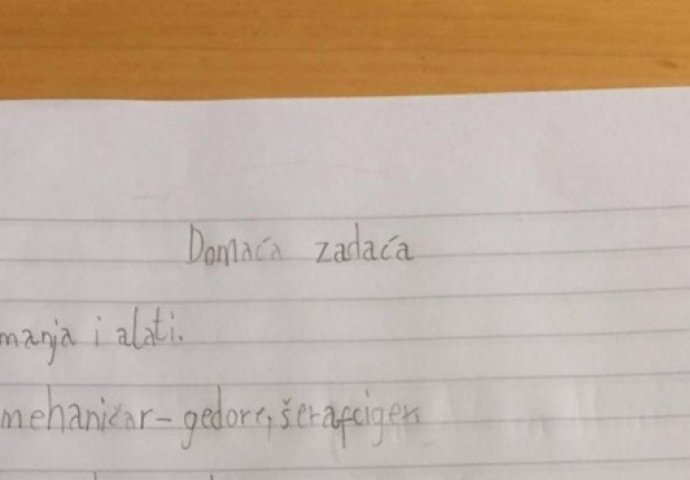 Domaća zadaća
manja i alati.
mehaničar - gedore, šerafciger